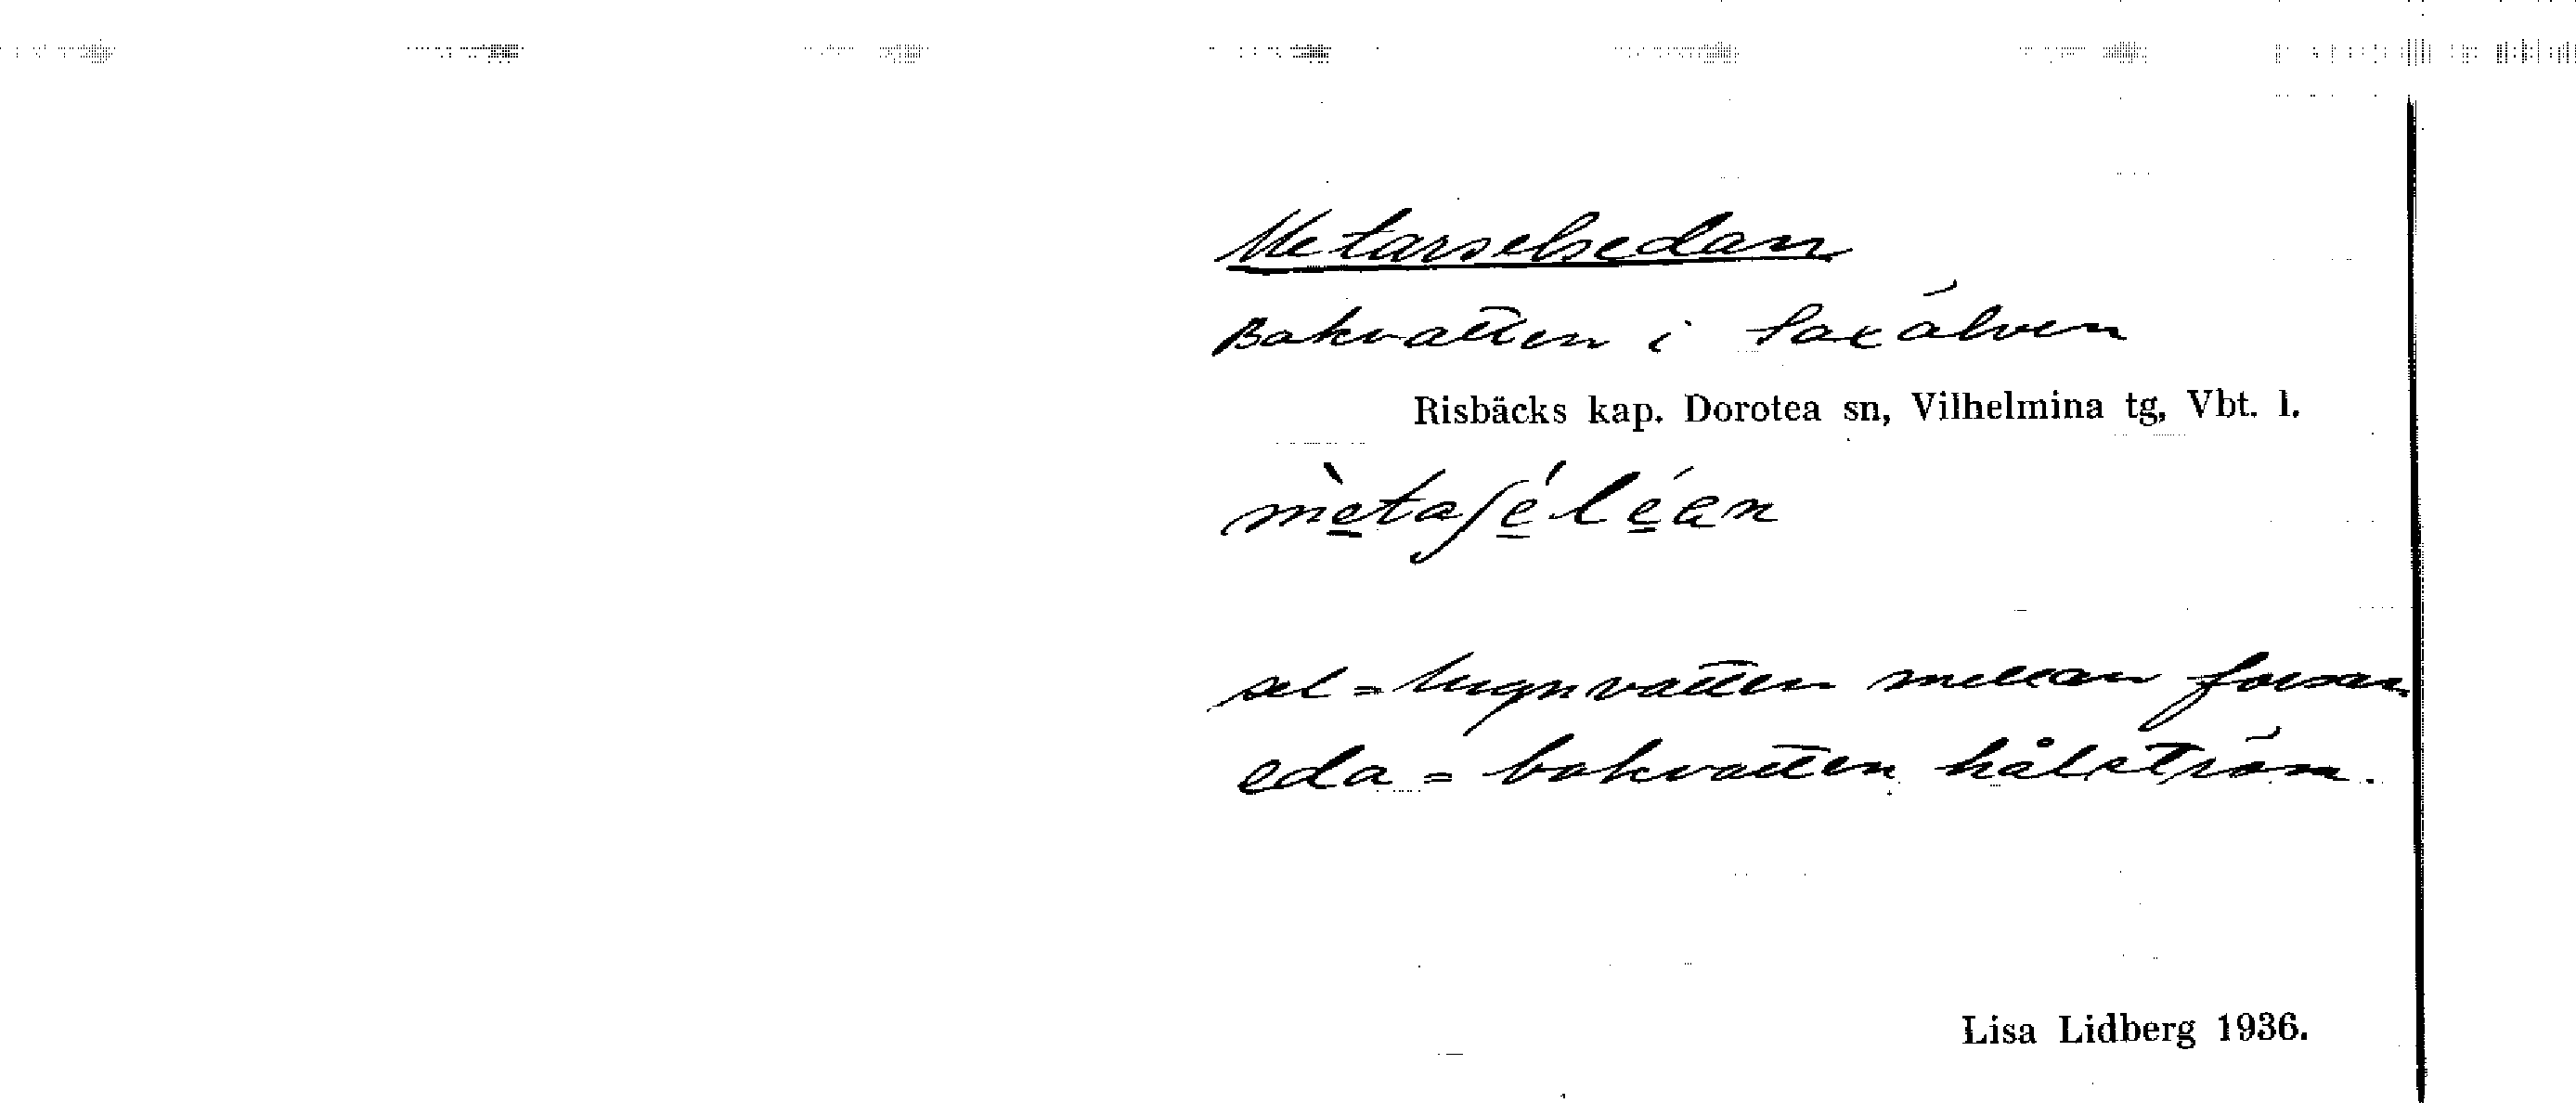 Metarselsedan
Bakvatten i Saxälven
Risbäcks kap. Dorotea sn, Vilhelmina tg, Vbt. l.
mètaʃéléan
sel = lugnvatten mellan forsar
eda = bakvatten hålström.
Lisa Lidberg 1936.